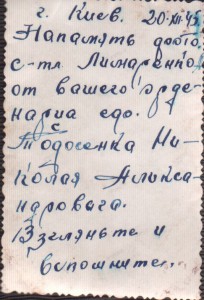 г. Киев. 20.XII.45
Напамять дорог.
с-тл. Лимаренко
от вашего орде-
нарца
Тодосенка Ни-
колая Аликса-
ндровыча.
Взгляньте и
вспомните...